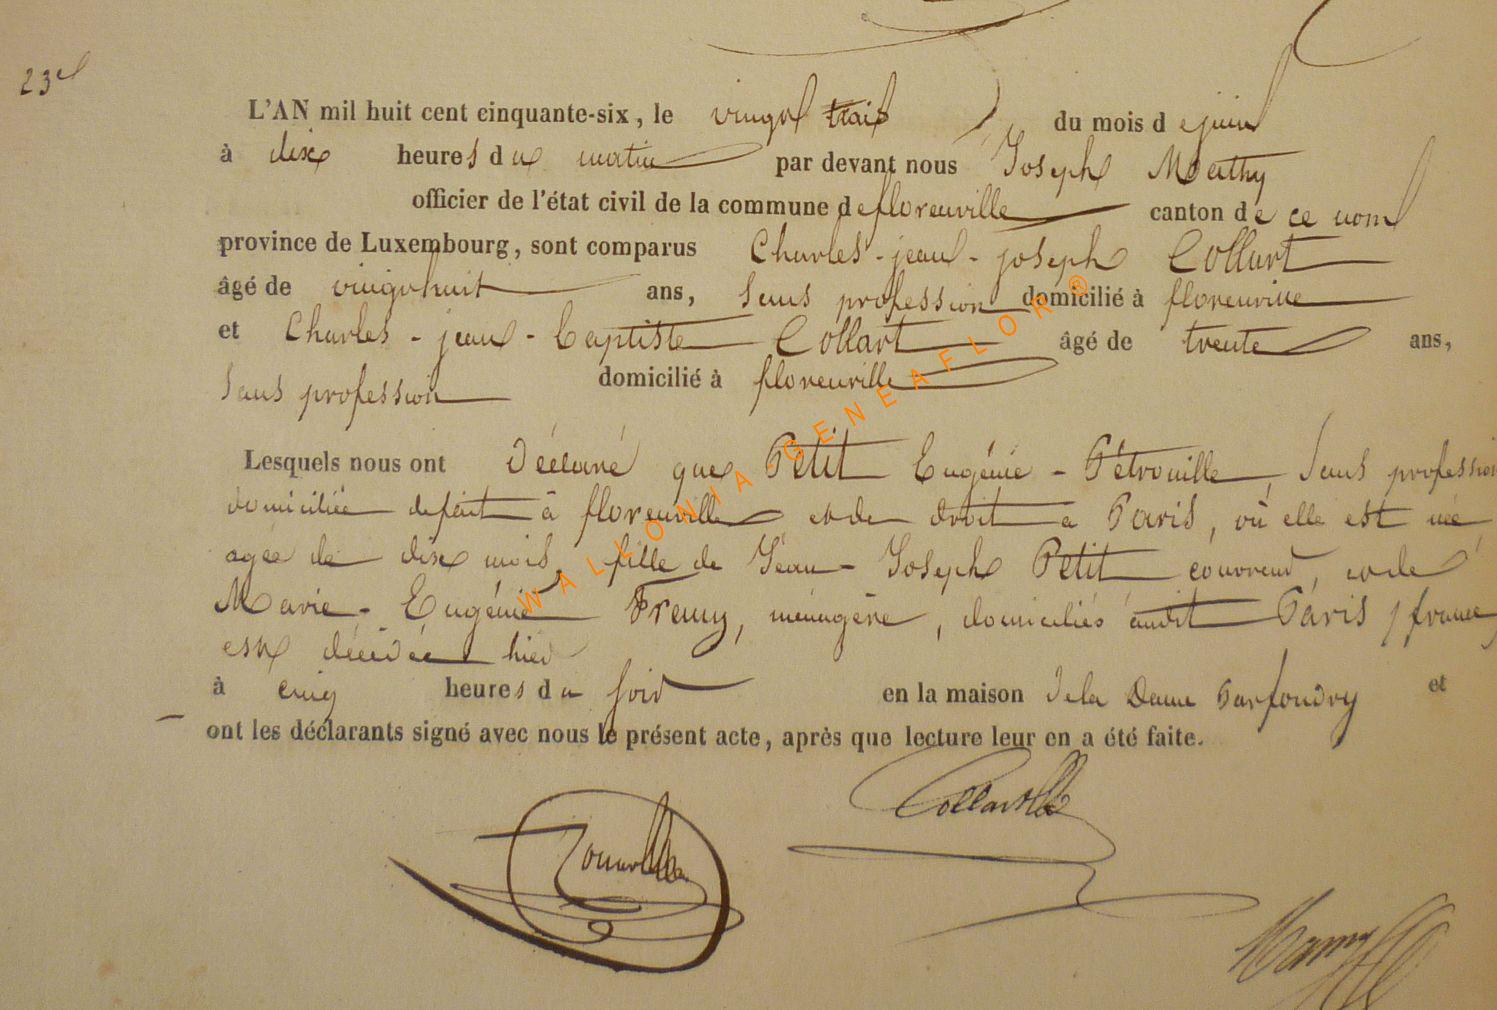 23e
L'AN mil huit cent cinquante-six, le vingt trois du mois de juin
à dix heures du matin par devant nous Joseph Mathy
officier de l'état civil de la commune de florenville canton de ce nom
province de Luxembourg, sont comparus Charles-jean-joseph Collart
âgé de vingt huit ans, sans profession domicilié à florenville
et Charles-jean-baptiste Collart âgé de trente ans,
sans profession domicilié à florenville
Lesquels nous ont déclaré que Petit Eugénie-Pétronille, sans profession
domiciliée de fait à florenville et de droit à Paris, où elle est née,
agée de dix mois, fille de Jean-Joseph Petit couvreur, et de
Marie-Eugénie Fremy, ménagère, domiciliés audit Paris (france)
est décédée hier
à cinq heures du soir en la maison de la Dame Parfondry et
ont les déclarants signé avec nous le présent acte, après que lecture leur en a été faite.
Collart
WALLONIA GENEAFLOR ®